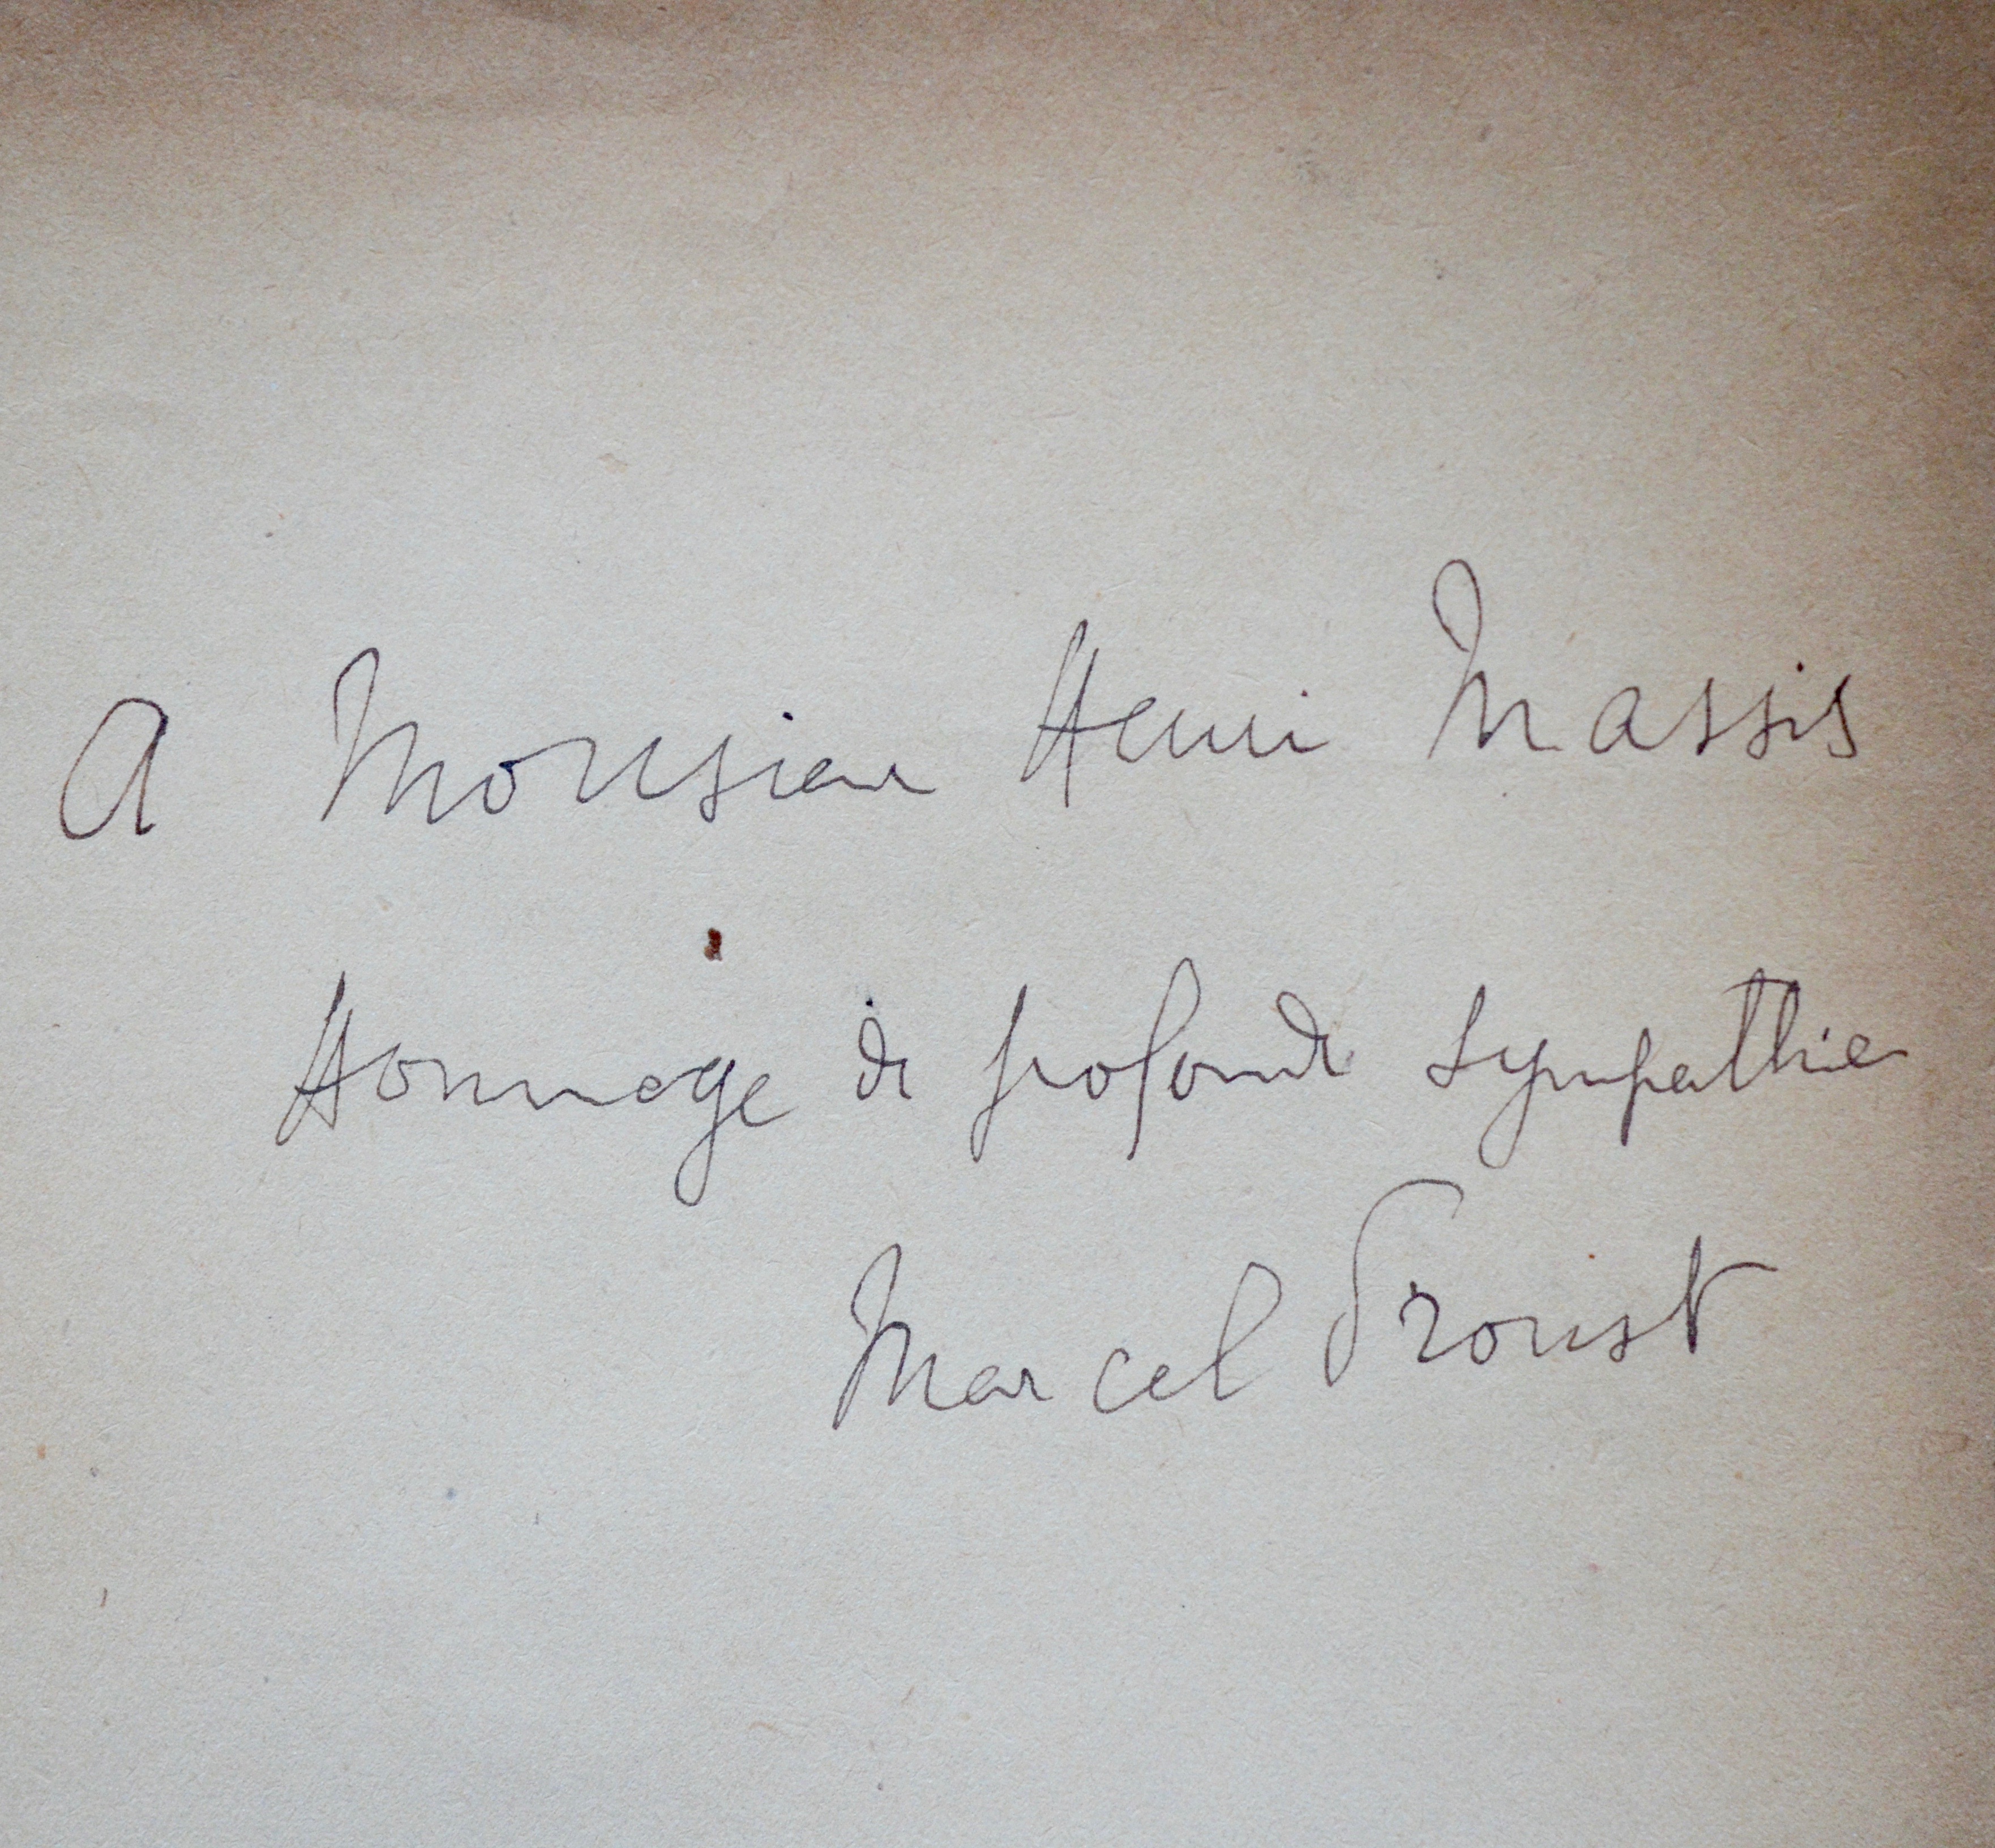 A Monsieur Henri Massis
Hommage de profonde sympathie
Marcel Proust